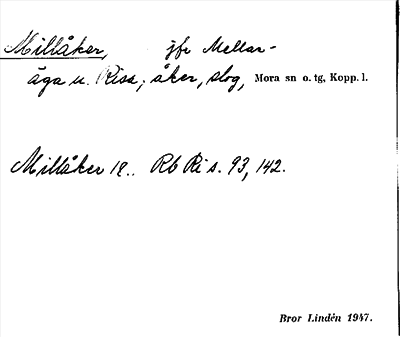 Millåker, jfr Mellar-
äga u. Risa; åker, slog, Mora sn o. tg, Kopp. l.
Millåker 12.. Rb Ri s. 93, 142.
Bror Lindén 1947.